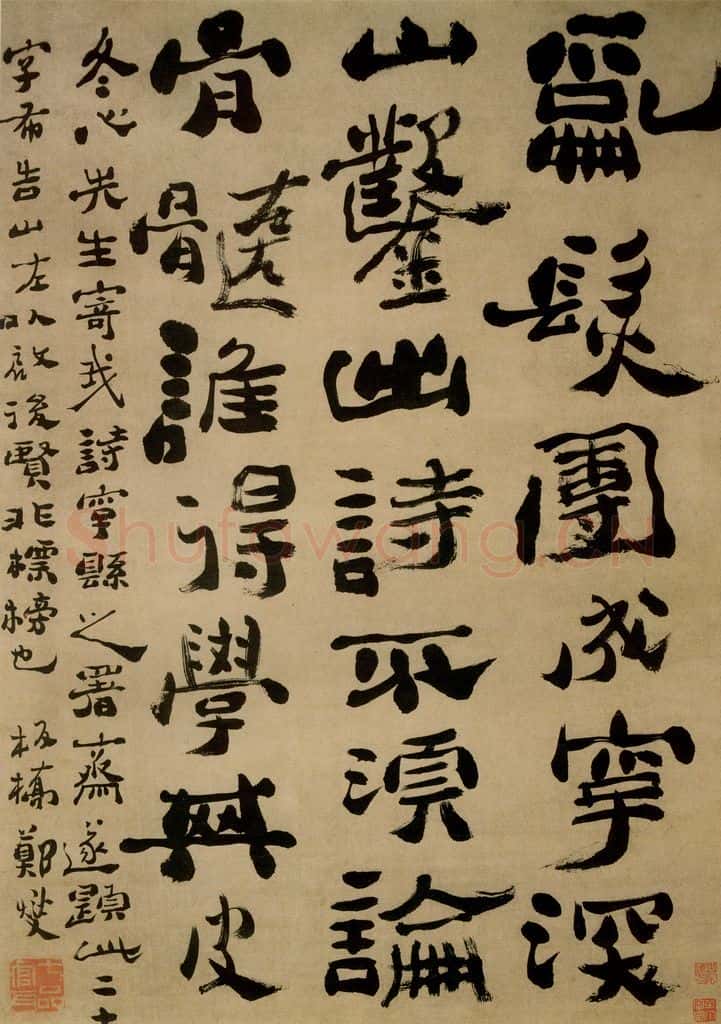 亂髮團成字深
山鑿出詩不須論
骨髓誰得學其皮
冬心先生寄我詩字縣之署齋遂題此二十
字布告山左以啟後賢非標榜也 板橋鄭燮
七品官耳
Shufawang.CN